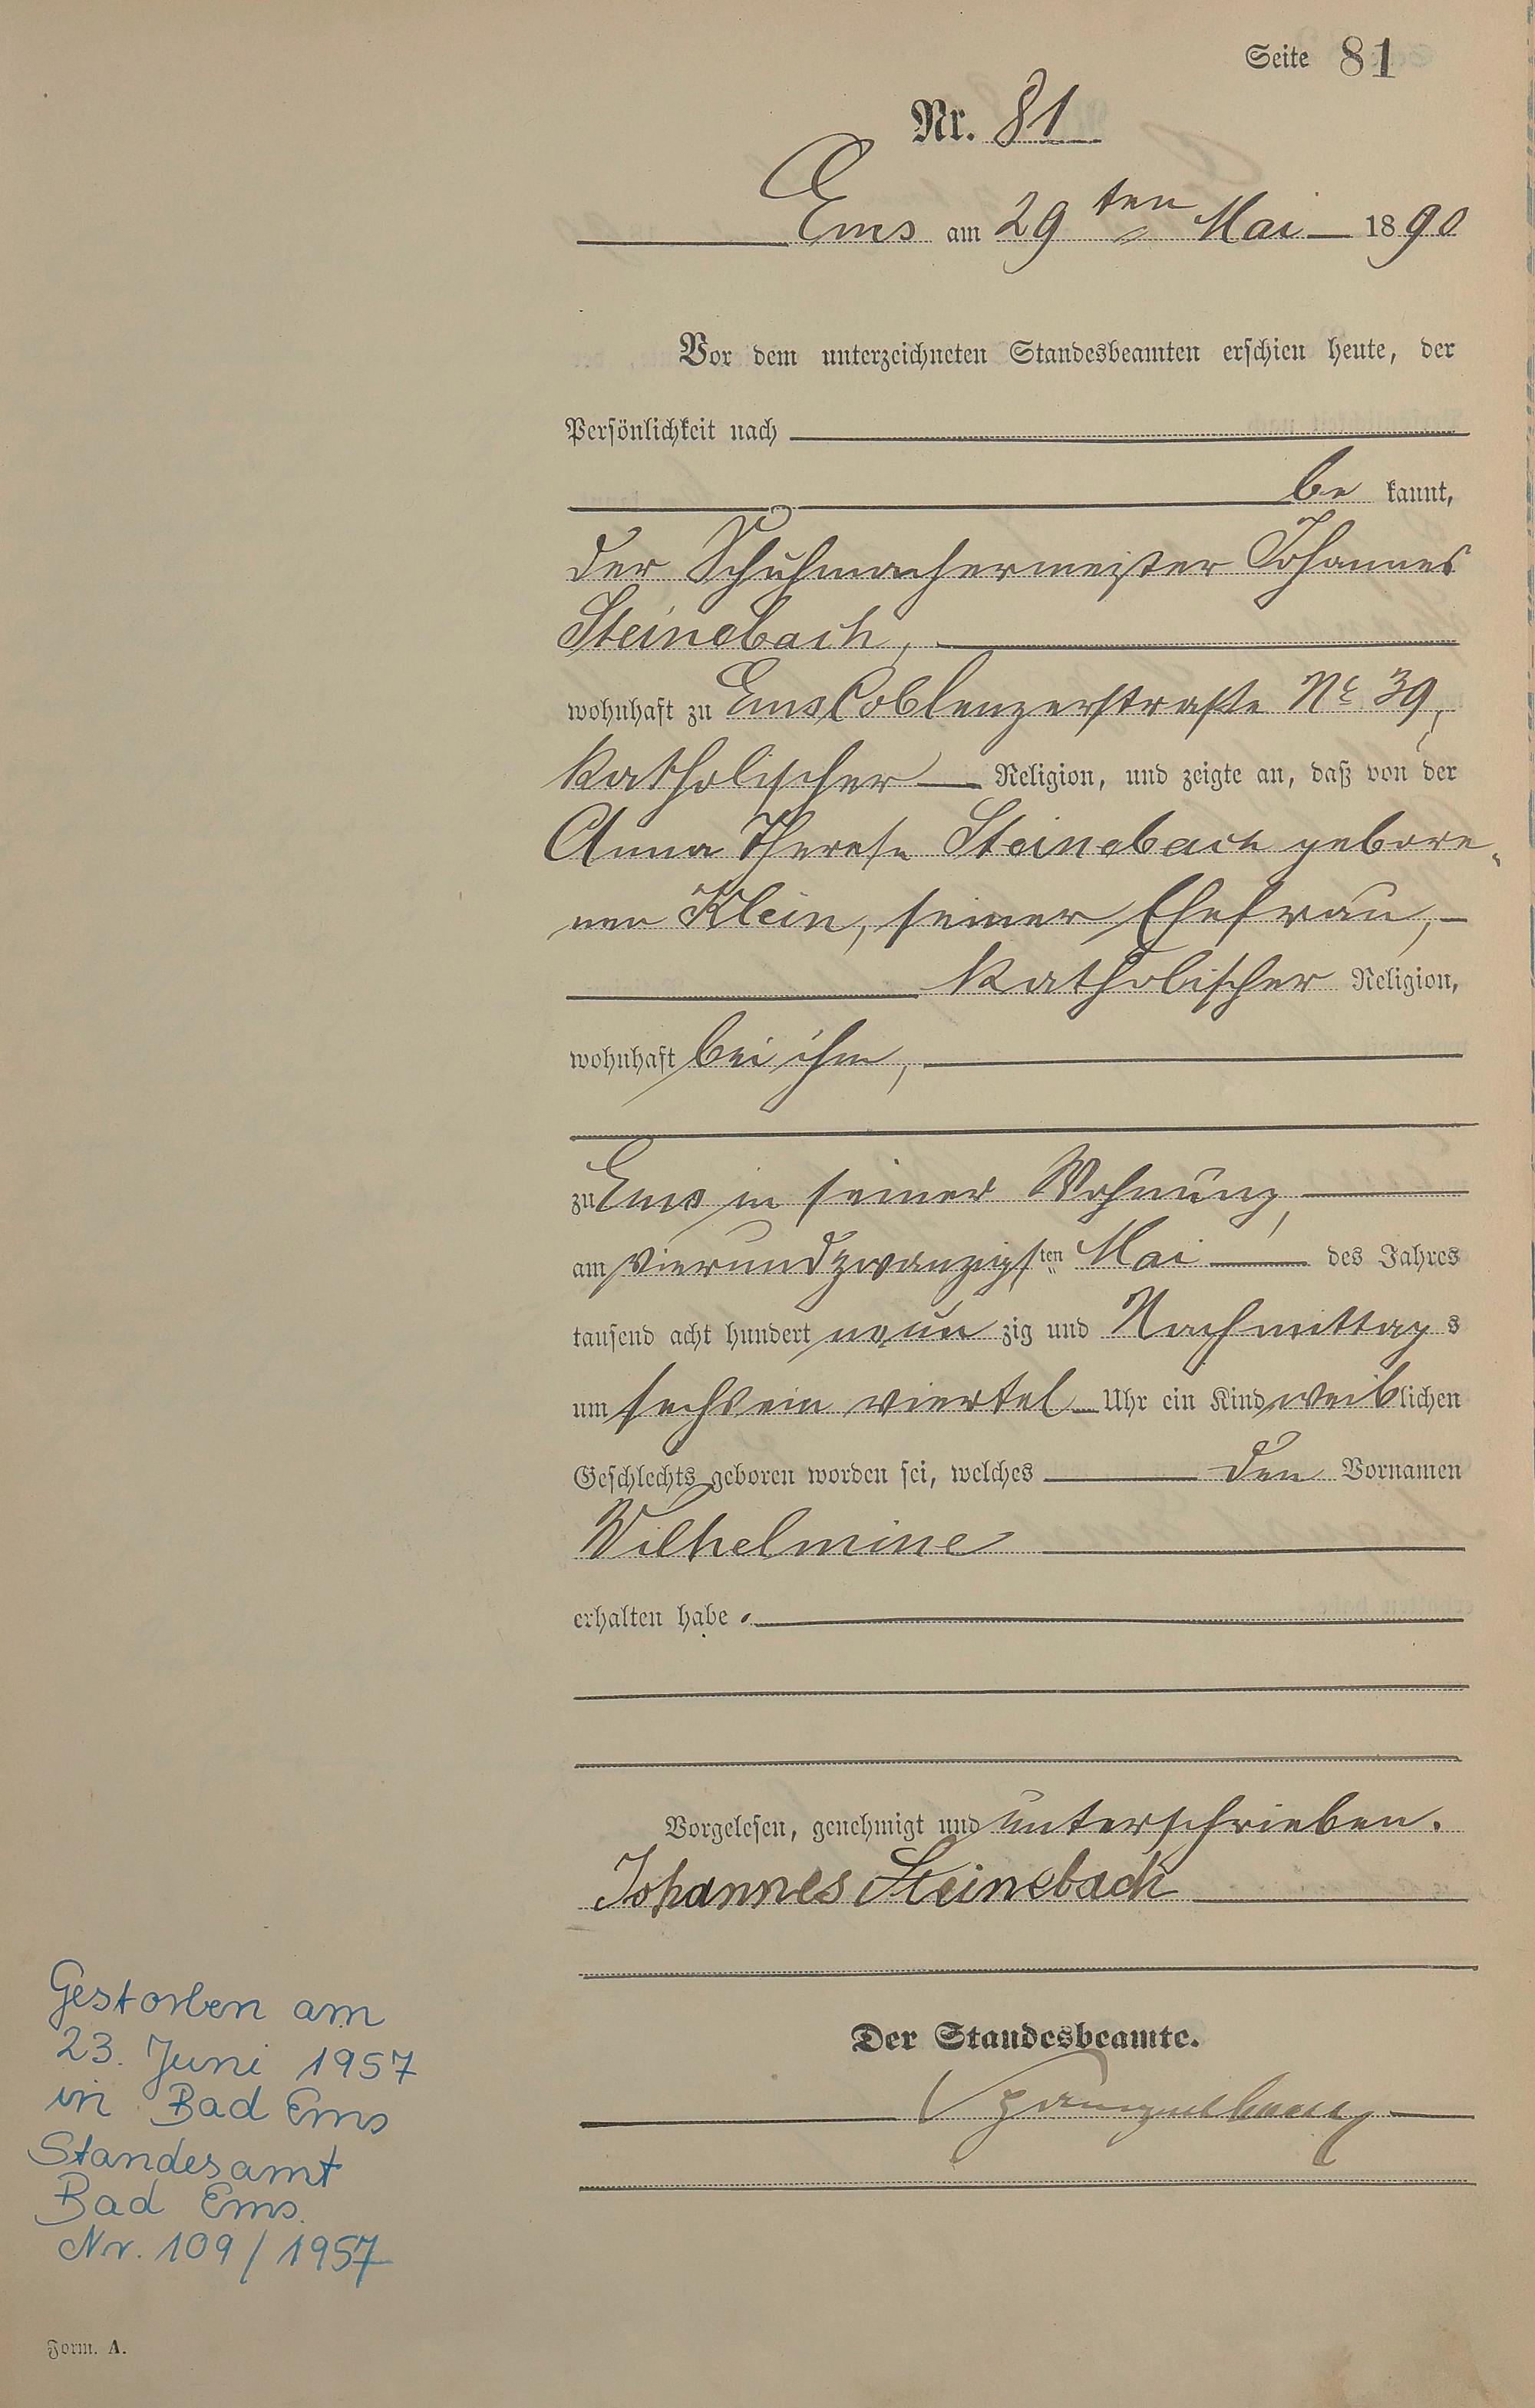 Seite 81
Nr. 81
Ems am 29ten Mai 1890
Vor dem unterzeichneten Standesbeamten erschien heute, der
Persönlichkeit nach
be kannt,
der Schuhmachermeister Johannes
Steinebach,
wohnhaft zu Ems Coblenzerstraße No 39,
katholischer Religion, und zeigte an, daß von der
Anna Therese Steinebach gebore-
nen Klein, seiner Ehefrau,
katholischer Religion,
wohnhaft bei ihm,
zu Ems in seiner Wohnung,
am vierundzwanzigsten Mai des Jahres
tausend acht hundert neun zig und Nachmittags
um sechs ein viertel Uhr ein Kind weiblichen
Geschlechts geboren worden sei, welches den Vornamen
Wilhelmine
erhalten habe.
Vorgelesen, genehmigt und unterschrieben.
Johannes Steinebach
Der Standesbeamte.
Gestorben am
23. Juni 1957
in Bad Ems
Standesamt
Bad Ems.
Nr. 109/1957
Form. A.